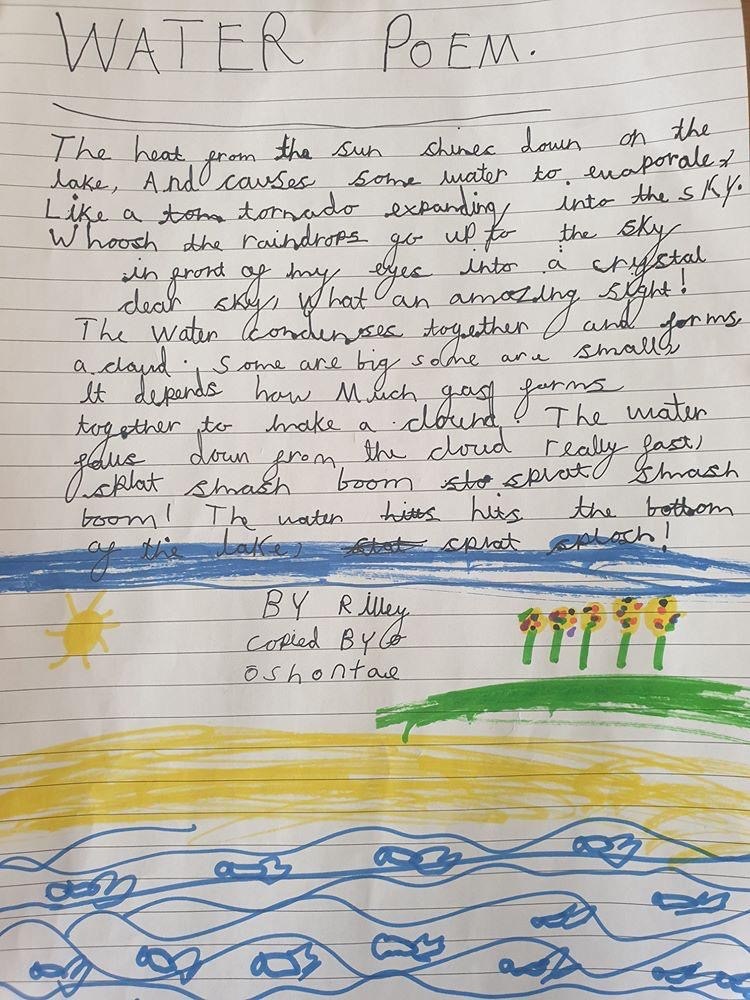 WATER POEM.
The heat from the sun shines down on the
lake, And causes some water to evaporate,
Like a tornado expanding into the SKY.
Whoosh the raindrops go up to the sky
in front of my eyes into a crystal
clear sky, What an amazing sight!
The Water condenses together and forms
a cloud. Some are big some are small,
It depends how Much gas forms
together to make a clound. The water
falls down from the cloud really fast,
splat smash boom splat smash
boom! The water hits the bottom
of the lake, splat splosh!
BY Rilley
copied BY
oshontae